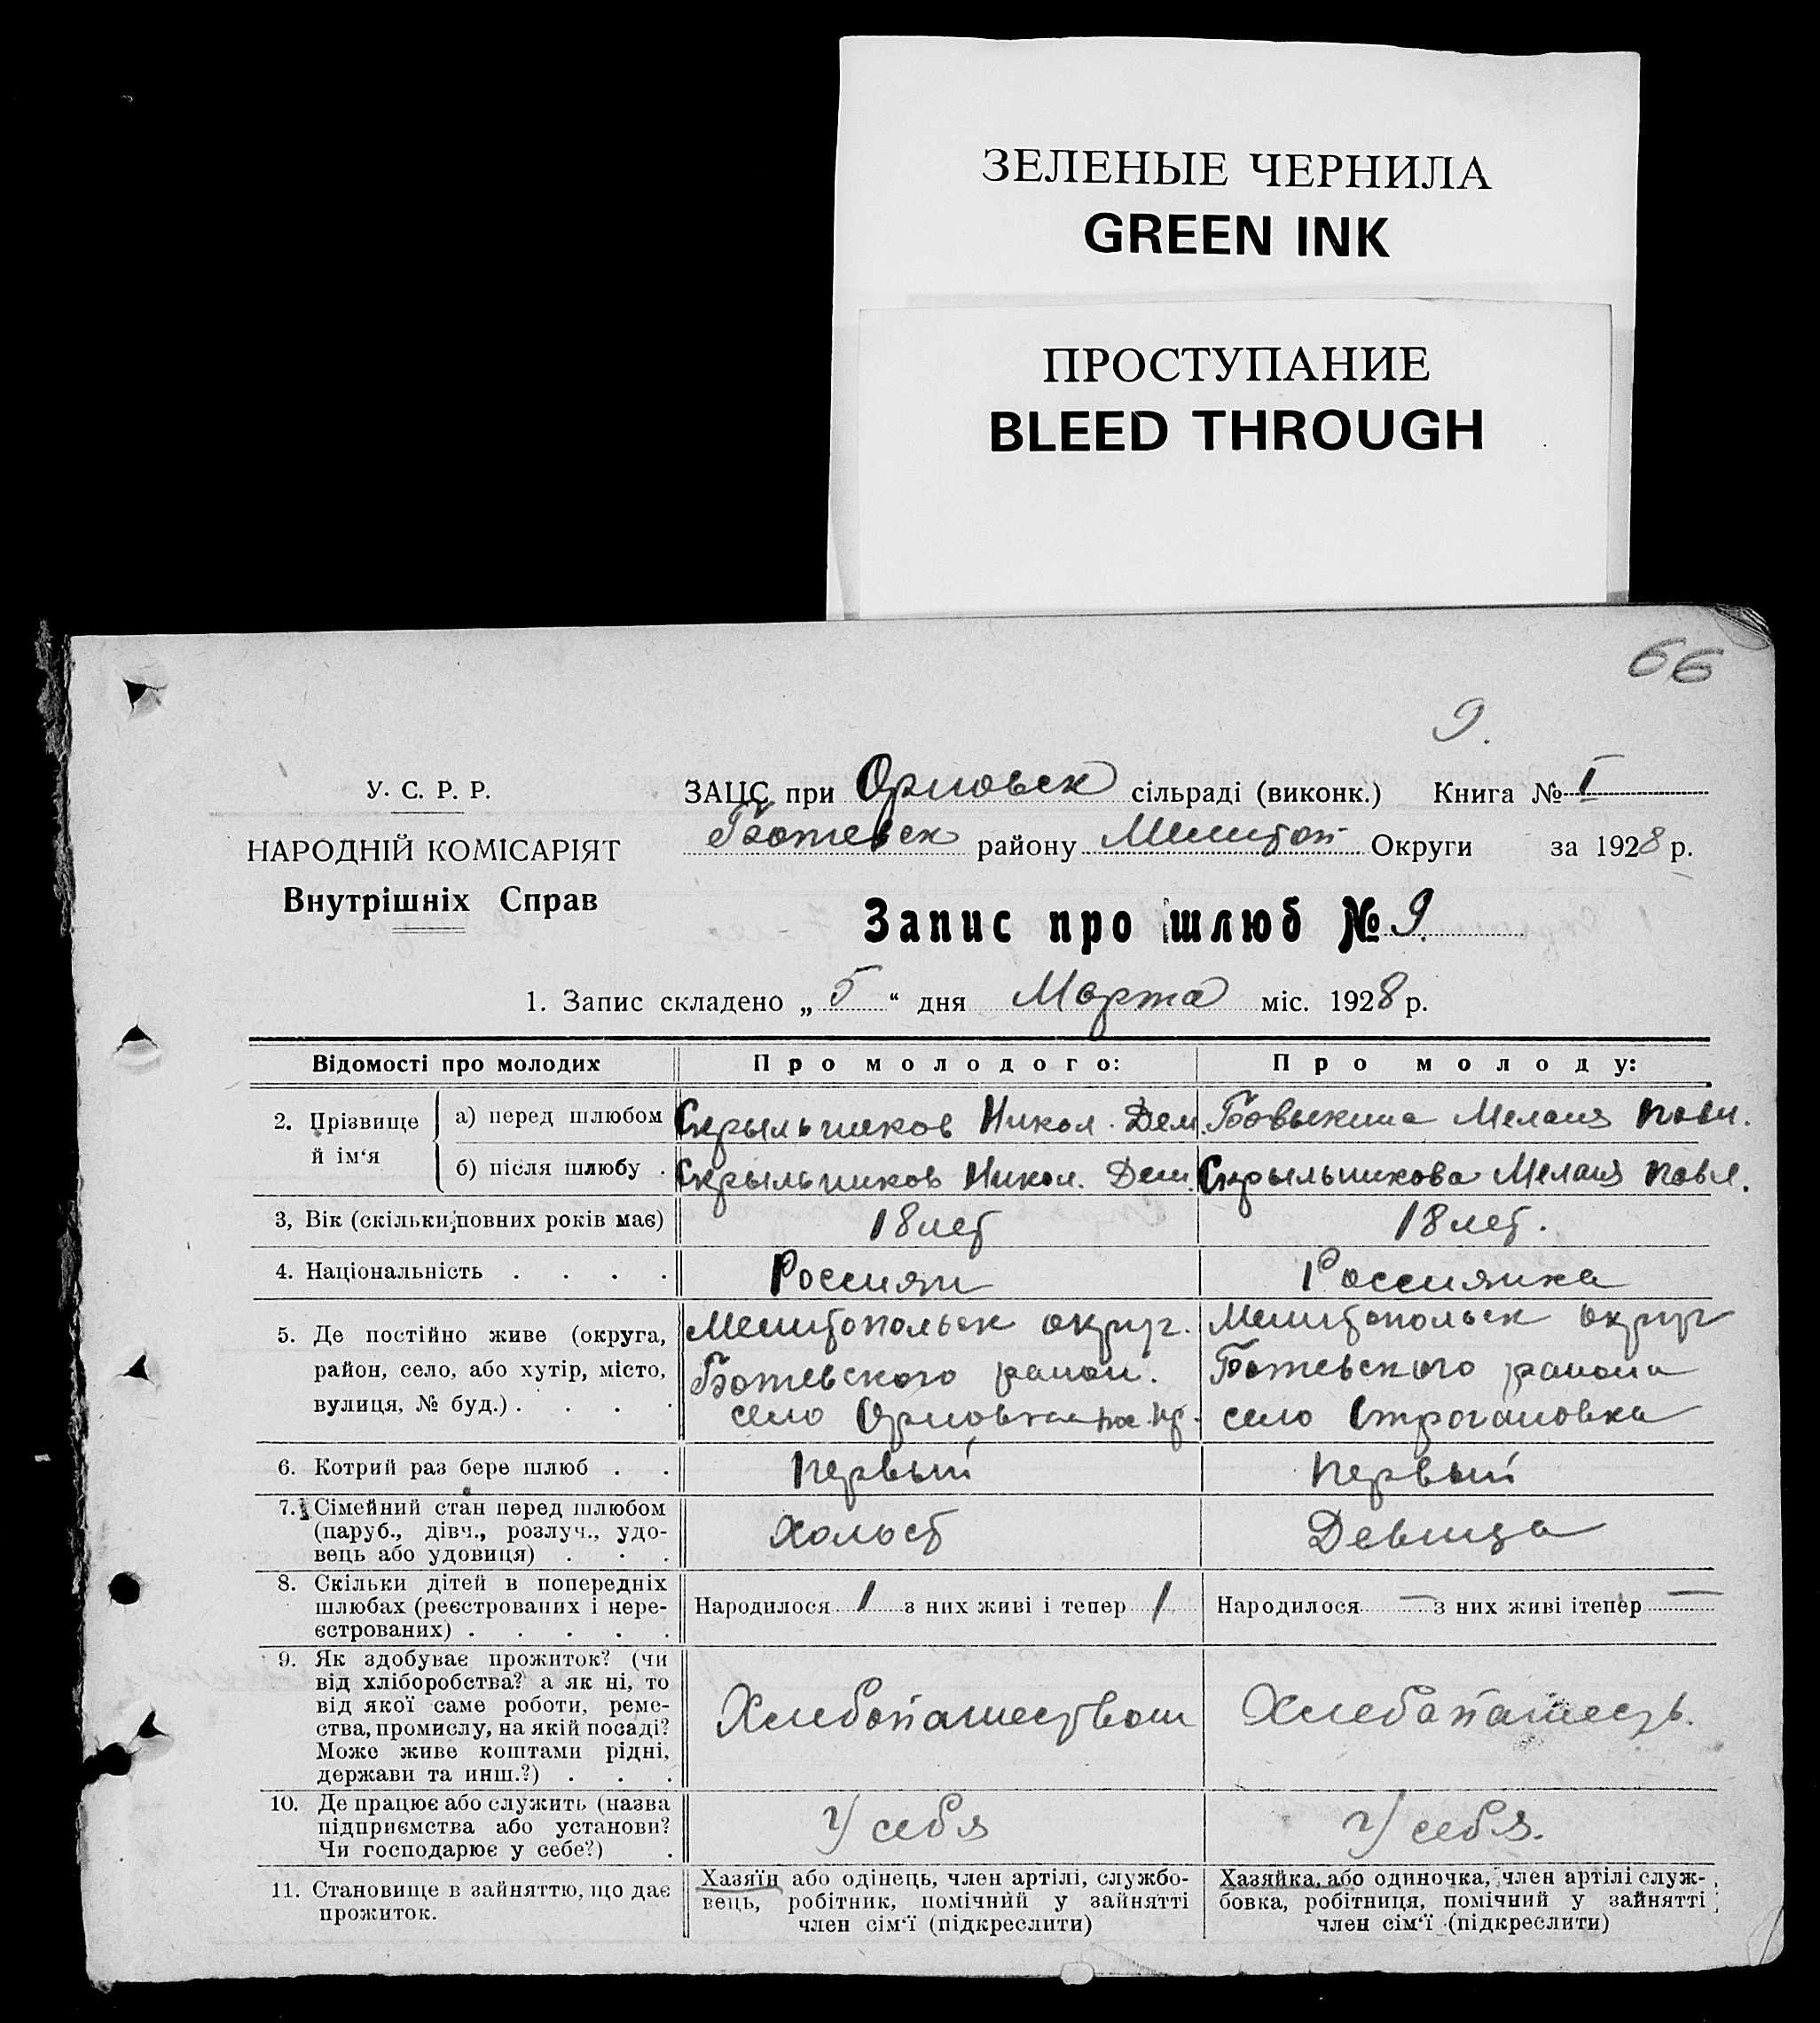 ЗЕЛЕНЫЕ ЧЕРНИЛА
GREEN INK
ПРОСТУПАНИЕ
BLEED THROUGH
66
9.
У. С. Р. Р.
НАРОДНІЙ КОМІСАРІЯТ
Внутрішніх Справ
ЗАЦС при Орловск сільраді (виконк.) Книга № I
Ботевск району Мелитоп Округи за 1928 р.
Запис про шлюб № 9.
1. Запис складено „ 5 “ дня Марта міс. 1928 р.
Відомості про молодих
Про молодого:
Про молоду:
2. Прізвище й ім‘я
а) перед шлюбом
Скрыльников Никол. Дем.
Бовыкина Мелания Павл.
б) після шлюбу .
Скрыльников Никол. Дем.
Скрыльникова Мелания Павл.
3, Вік (скільки повних років має)
18 лет
18 лет.
4. Національність . . . .
Россиян
Россиянка
5. Де постійно живе (округа,
район, село, або хутір, місто,
вулиця, № буд.) . . . .
Мелитопольск округ.
Ботевского район.
село Орловка
Мелитопольск округ
Ботевского района
село Строгановка
6. Котрий раз бере шлюб . .
первый
первый
7. Сімейний стан перед шлюбом
(паруб., дівч., розлуч., удо-
вець або удовиця) . . .
Холост
Девица
8. Скільки дітей в попередніх
шлюбах (реєстрованих і нере-
єстрованих) . . . . .
Народилося 1 з них живі і тепер 1
Народилося — з них живі ітепер —
9. Як здобуває прожиток? (чи
від хліборобства? а як ні, то
від якої саме роботи, реме-
ства, промислу, на якій посаді?
Може живе коштами рідні,
держави та инш.?) . . .
Хлебопашеством
Хлебапашеств.
10. Де працює або служить (назва
підприємства або установи?
Чи господарює у себе?) .
У себя
У себя.
11. Становище в зайняттю, що дає
прожиток.
Хазяїн або одінець, член артілі, службо-
вець, робітник, помічний у зайнятті
член сім‘ї (підкреслити)
Хазяйка, або одиночка, член артілі служ-
бовка, робітниця, помічний у зайнятті
член сім‘ї (підкреслити)